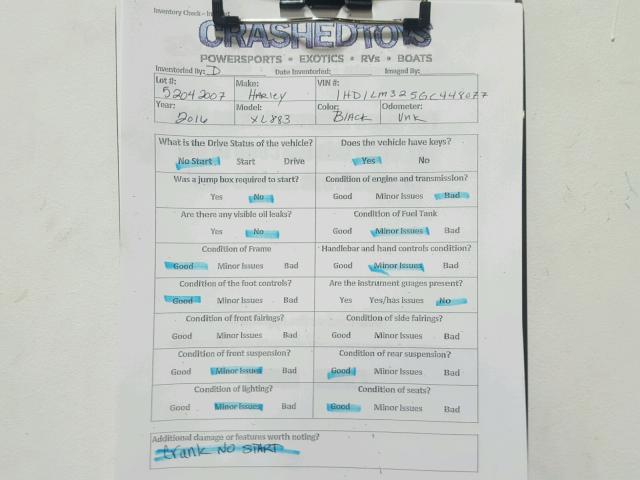 Inventory Check - In
CRASHEDTOYS
POWERSPORTS • EXOTICS • RVs • BOATS
Inventoried By: D Date Inventoried: Imaged By:
Lot #: Make: VIN #:
52042007 HARLEY 1HD1LM325GC448077
Year: Model: Color: Odometer:
2016 XL883 BLACK Unk
What is the Drive Status of the vehicle? Does the vehicle have keys?
No Start Start Drive Yes No
Was a jump box required to start? Condition of engine and transmission?
Yes No Good Minor Issues Bad
Are there any visible oil leaks? Condition of Fuel Tank
Yes No Good Minor Issues Bad
Condition of Frame Handlebar and hand controls condition?
Good Minor Issues Bad Good Minor Issues Bad
Condition of the foot controls? Are the instrument guages present?
Good Minor Issues Bad Yes Yes/has issues No
Condition of front fairings? Condition of side fairings?
Good Minor Issues Bad Good Minor Issues Bad
Condition of front suspension? Condition of rear suspension?
Good Minor Issues Bad Good Minor Issues Bad
Condition of lighting? Condition of seats?
Good Minor Issues Bad Good Minor Issues Bad
Additional damage or features worth noting?
Crank NO START